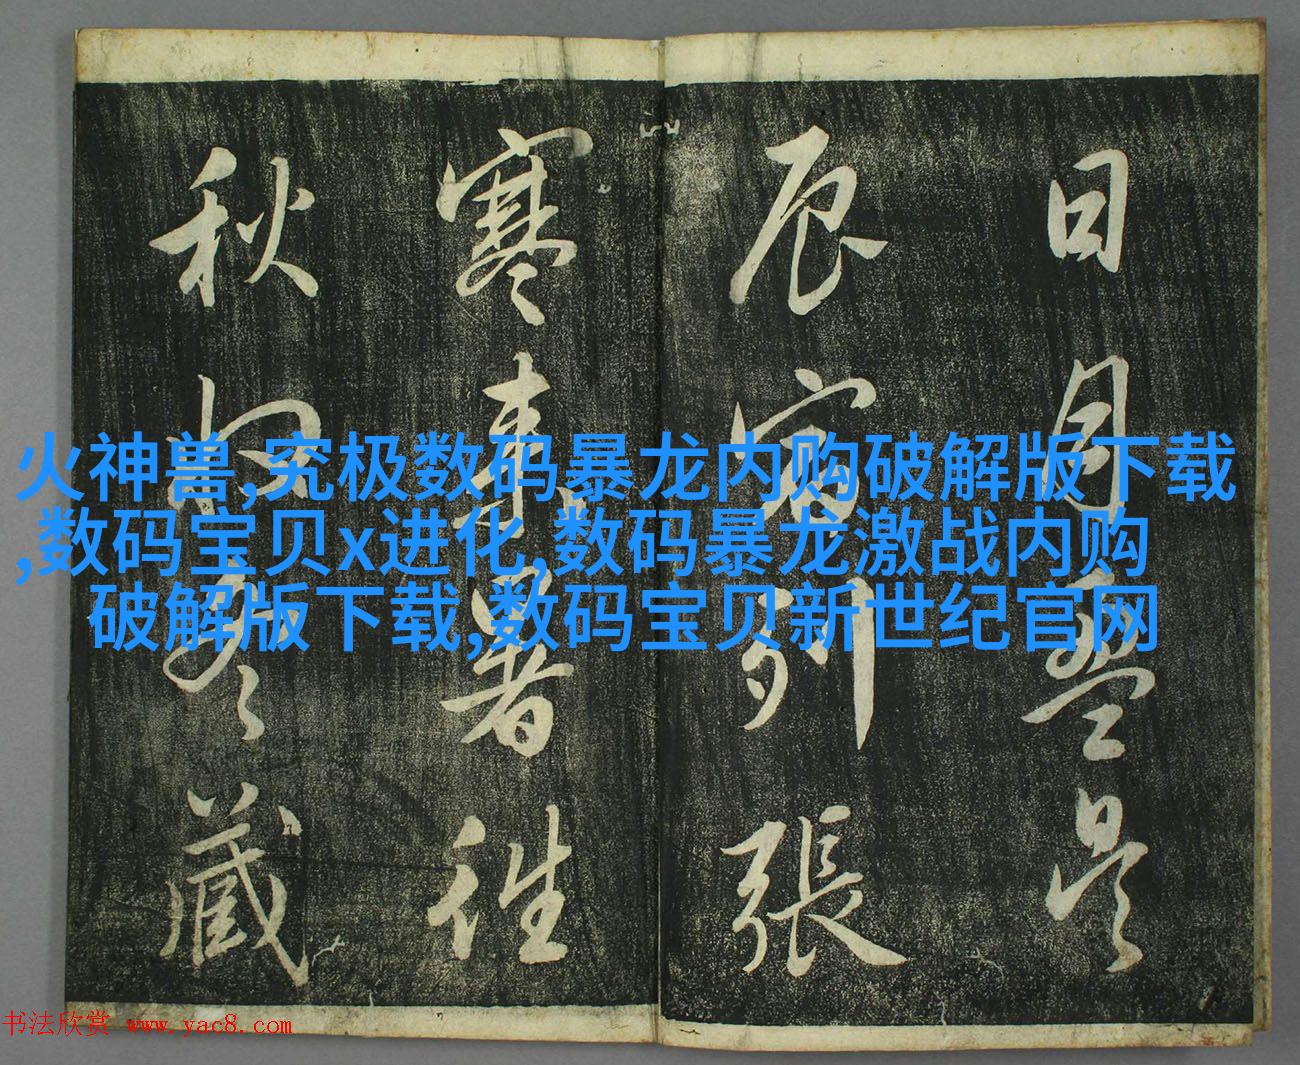 日月盈昃
辰宿列張
寒来暑往
秋收冬藏
火神兽,究极数码暴龙内购破解版下载
,数码宝贝x进化,数码暴龙激战内购
破解版下载,数码宝贝新世纪官网
书法欣赏 www.yac8.com